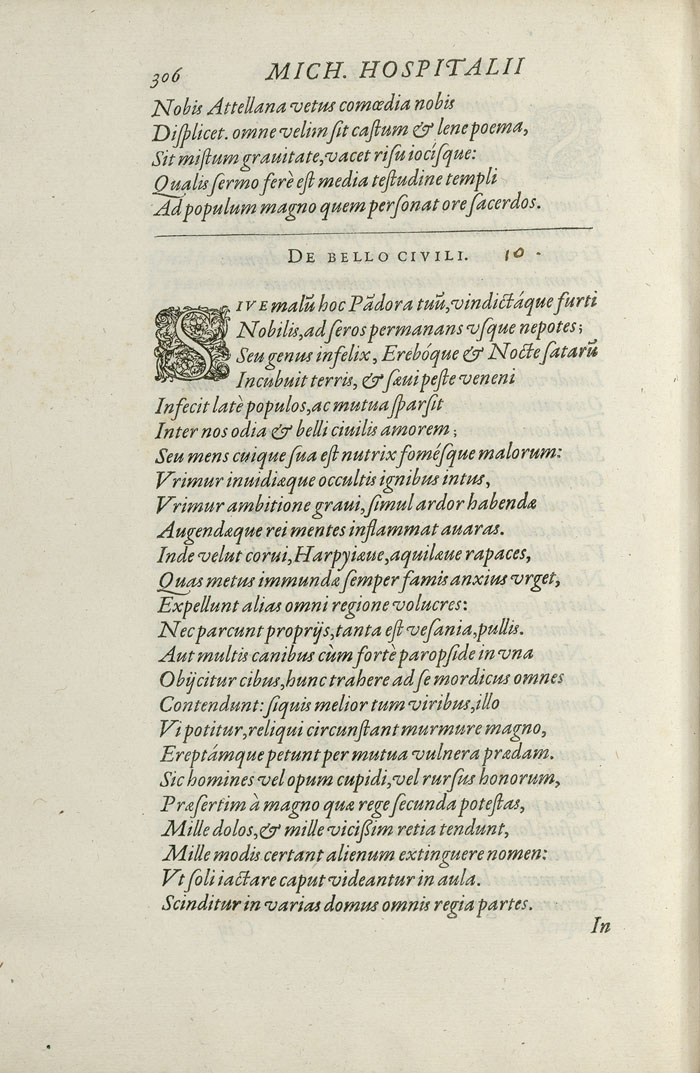 306 MICH. HOSPITALII
Nobis Attellana vetus comœdia nobis
Diſplicet. omne velim ſit caſtum & lene poema,
Sit miſtum grauitate, vacet riſu iociſque:
Qualis ſermo ferè eſt media teſtudine templi
Ad populum magno quem perſonat ore ſacerdos.
DE BELLO CIVILI. 10.
SIVE malū hoc Pādora tuū, vindictáque furti
Nobilis, ad ſeros permanans vſque nepotes;
Seu genus infelix, Erebóque & Nocte ſatarū
Incubuit terris, & ſæui peſte veneni
Infecit latè populos, ac mutua ſparſit
Inter nos odia & belli ciuilis amorem;
Seu mens cuique ſua eſt nutrix foméſque malorum:
Vrimur inuidiæque occultis ignibus intus,
Vrimur ambitione graui, ſimul ardor habendæ
Augendæque rei mentes inflammat auaras.
Inde velut corui, Harpyiæue, aquilæue rapaces,
Quas metus immundæ ſemper famis anxius vrget,
Expellunt alias omni regione volucres:
Nec parcunt proprijs, tanta eſt veſania, pullis.
Aut multis canibus cùm fortè paropſide in vna
Obijcitur cibus, hunc trahere ad ſe mordicus omnes
Contendunt: ſiquis melior tum viribus, illo
Vi potitur, reliqui circunſtant murmure magno,
Ereptámque petunt per mutua vulnera prædam.
Sic homines vel opum cupidi, vel rurſus honorum,
Præſertim à magno quæ rege ſecunda poteſtas,
Mille dolos, & mille viciſſim retia tendunt,
Mille modis certant alienum extinguere nomen:
Vt ſoli iactare caput videantur in aula.
Scinditur in varias domus omnis regia partes.
In